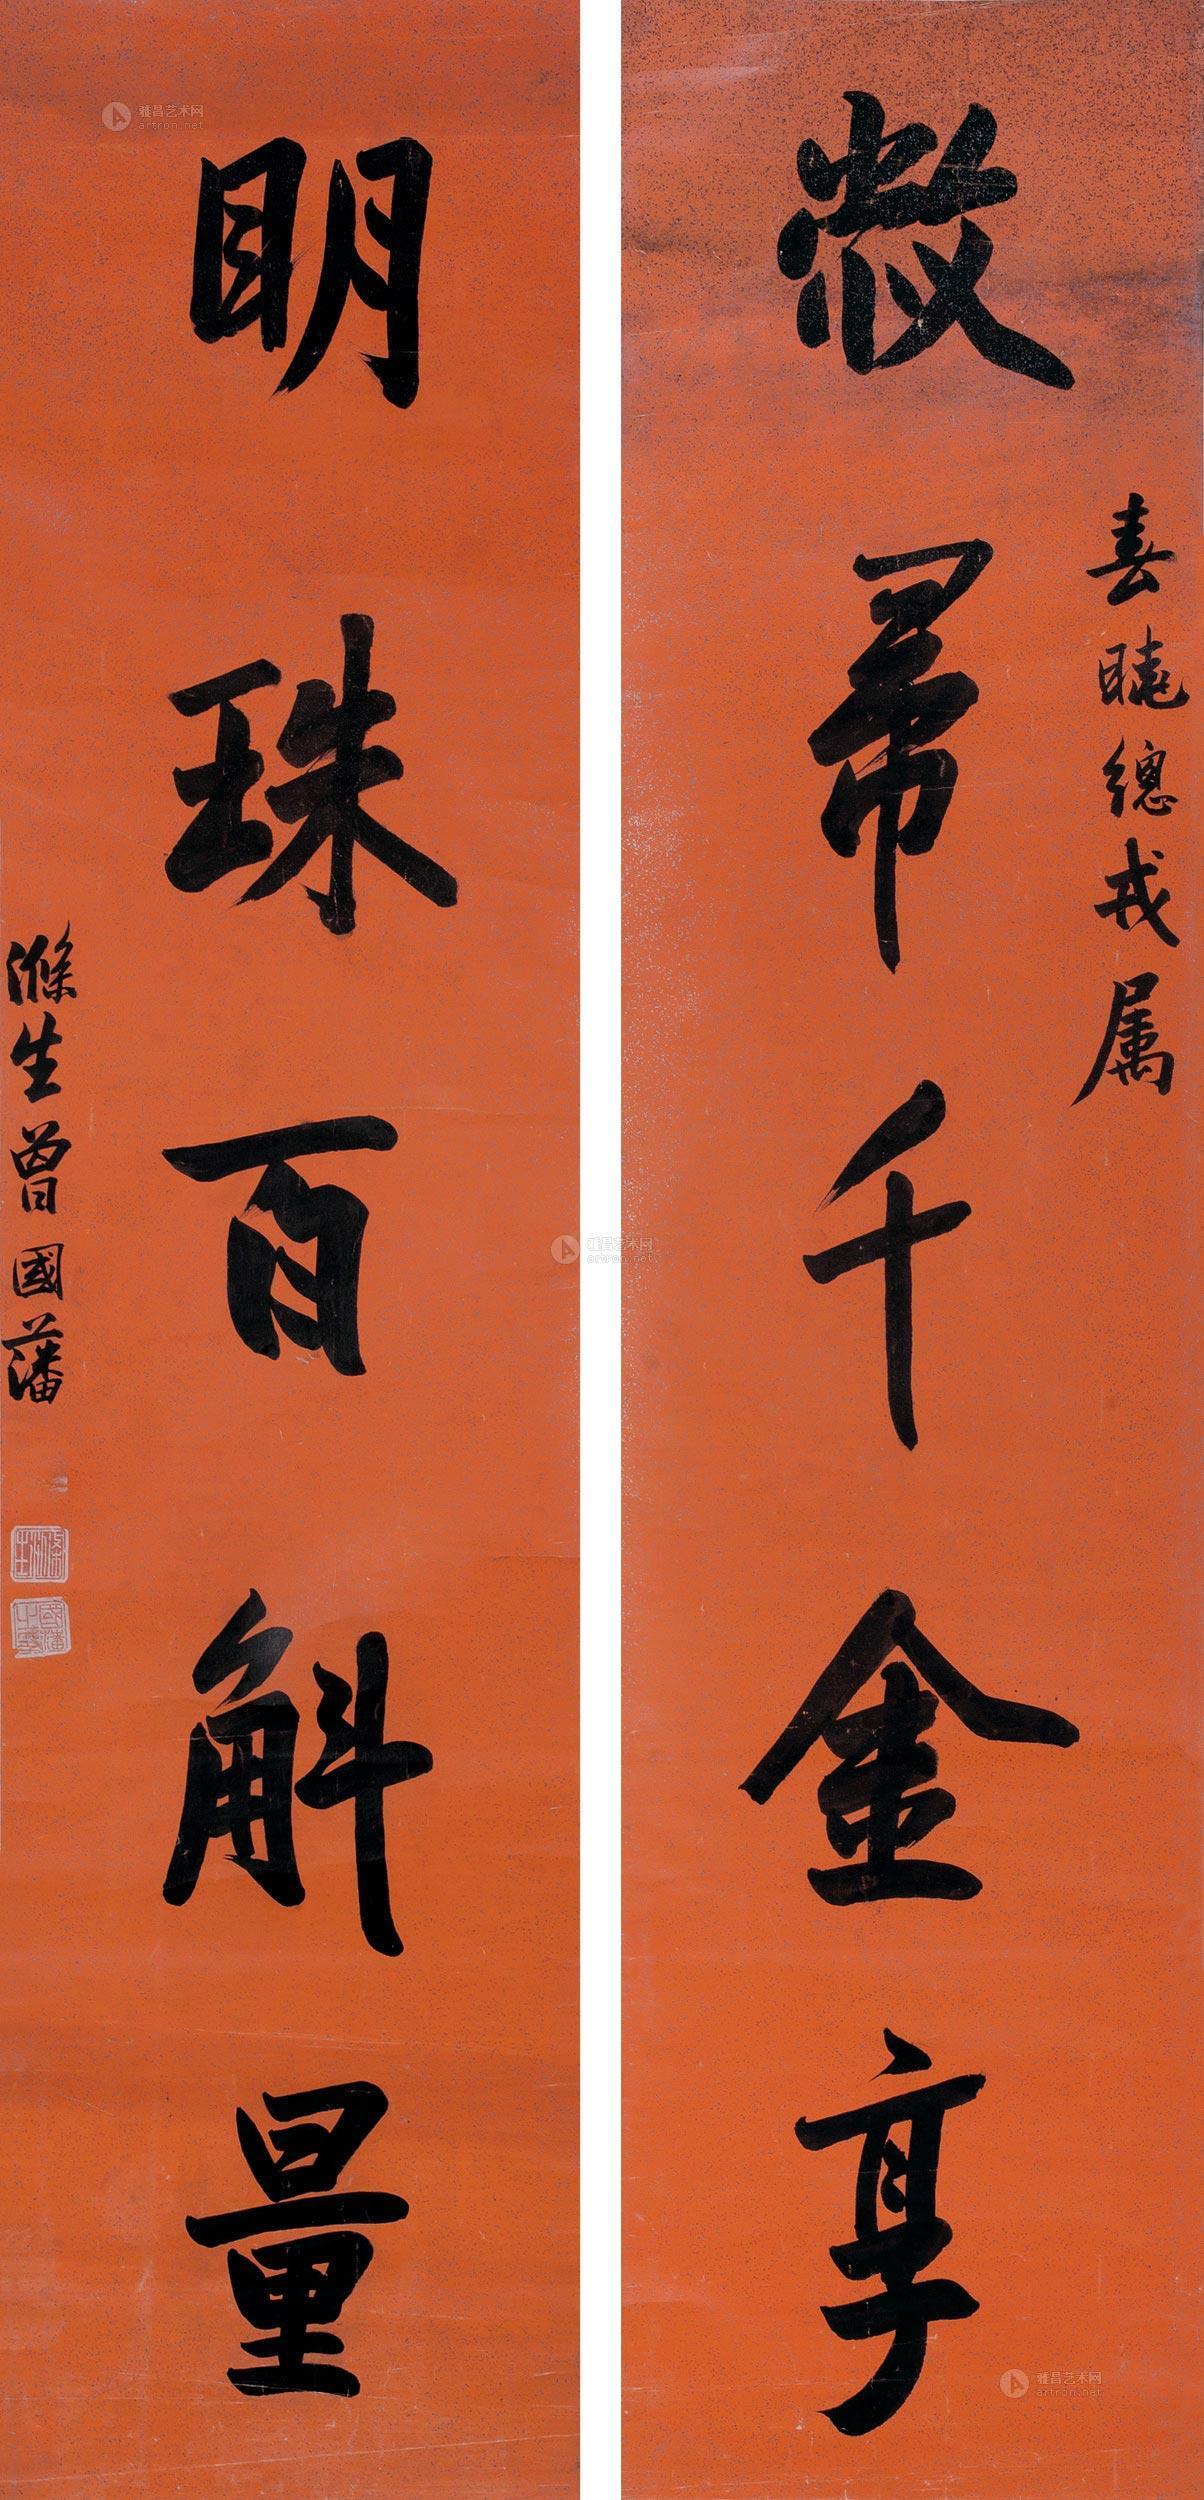 敝帚千金享
喜曉總戎属
明珠百斛量
滌生曾國藩
雅昌艺术网
artron.net
雅昌艺术网
artron.net
雅昌艺术网
artron.net